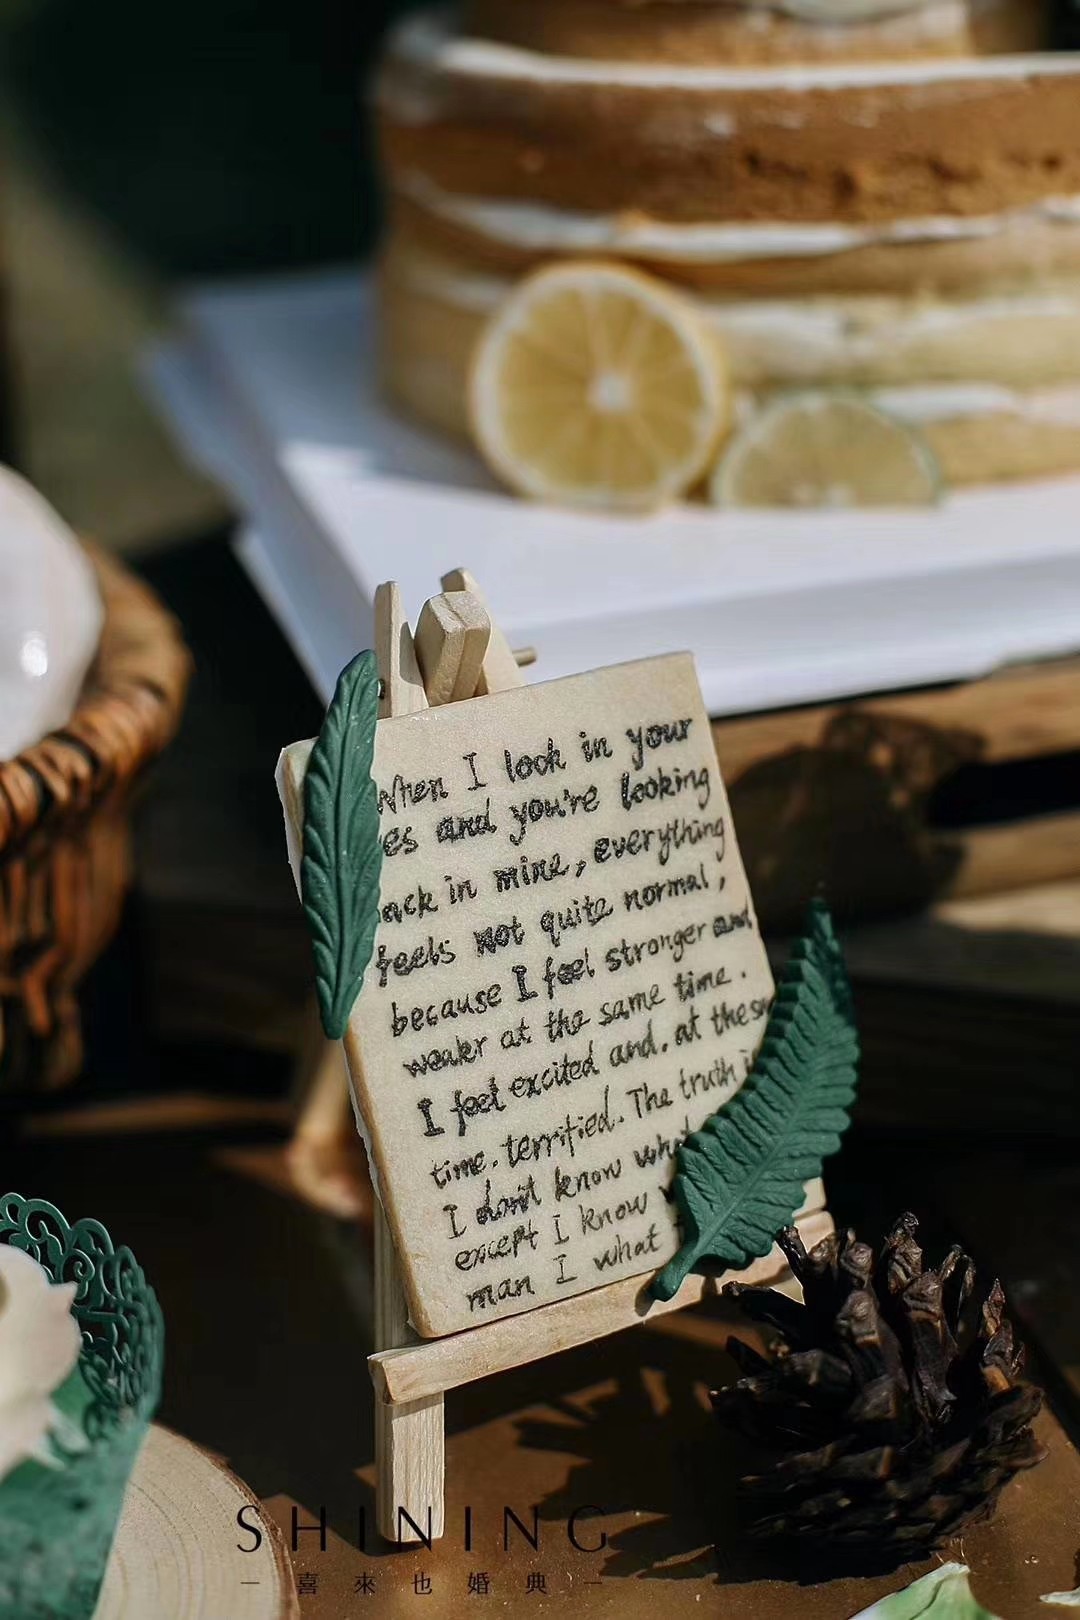 When I look in your
es and you're looking
ack in mine, everything
feels not quite normal,
because I feel stronger and
weaker at the same time.
I feel excited and. at the sa
time. terrified. The truth i
I don't know what
except I know
man I what
SHINING
喜來也婚典